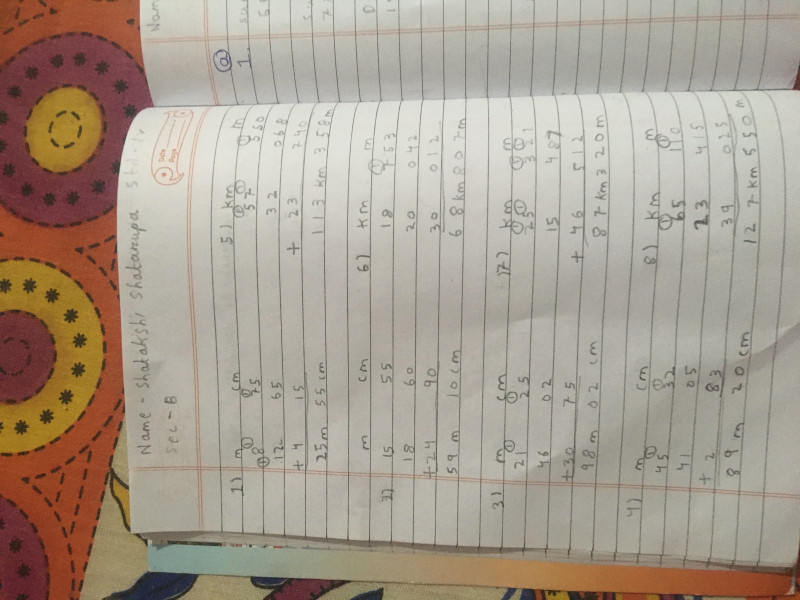 Name - Shatakshi Shatarupa Std - IV
Sec - B
Date
Page
1) m cm
① ①
8 75
12 65
+ 4 15
25m 55cm
2) m cm
15 55
18 60
+24 90
59 m 10cm
3) m cm
① ①
21 25
46 02
+30 75
98 m 02 cm
4) m cm
① ①
45 32
41 05
+ 2 83
89 m 20 cm
5) km m
① ① ①
57 550
32 068
+ 23 740
113 km 358m
6) km m
①
18 753
20 042
30 012
68 km 807m
7) km m
① ① ① ①
25 321
15 487
+ 46 512
87 km 320m
8) km m
① ①
65 110
23 415
39 025
127 km 550 m
Nam
a
1.